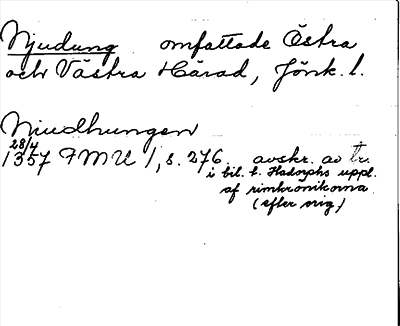 Njudung omfattade Östra
och Västra Härad, Jönk. l.
Niudhungen
28/4
1357 FMU 1, s. 276. avskr. av tr.
i bil. t. Hadorphs uppl.
af rimkrönikorna
(efter orig.)